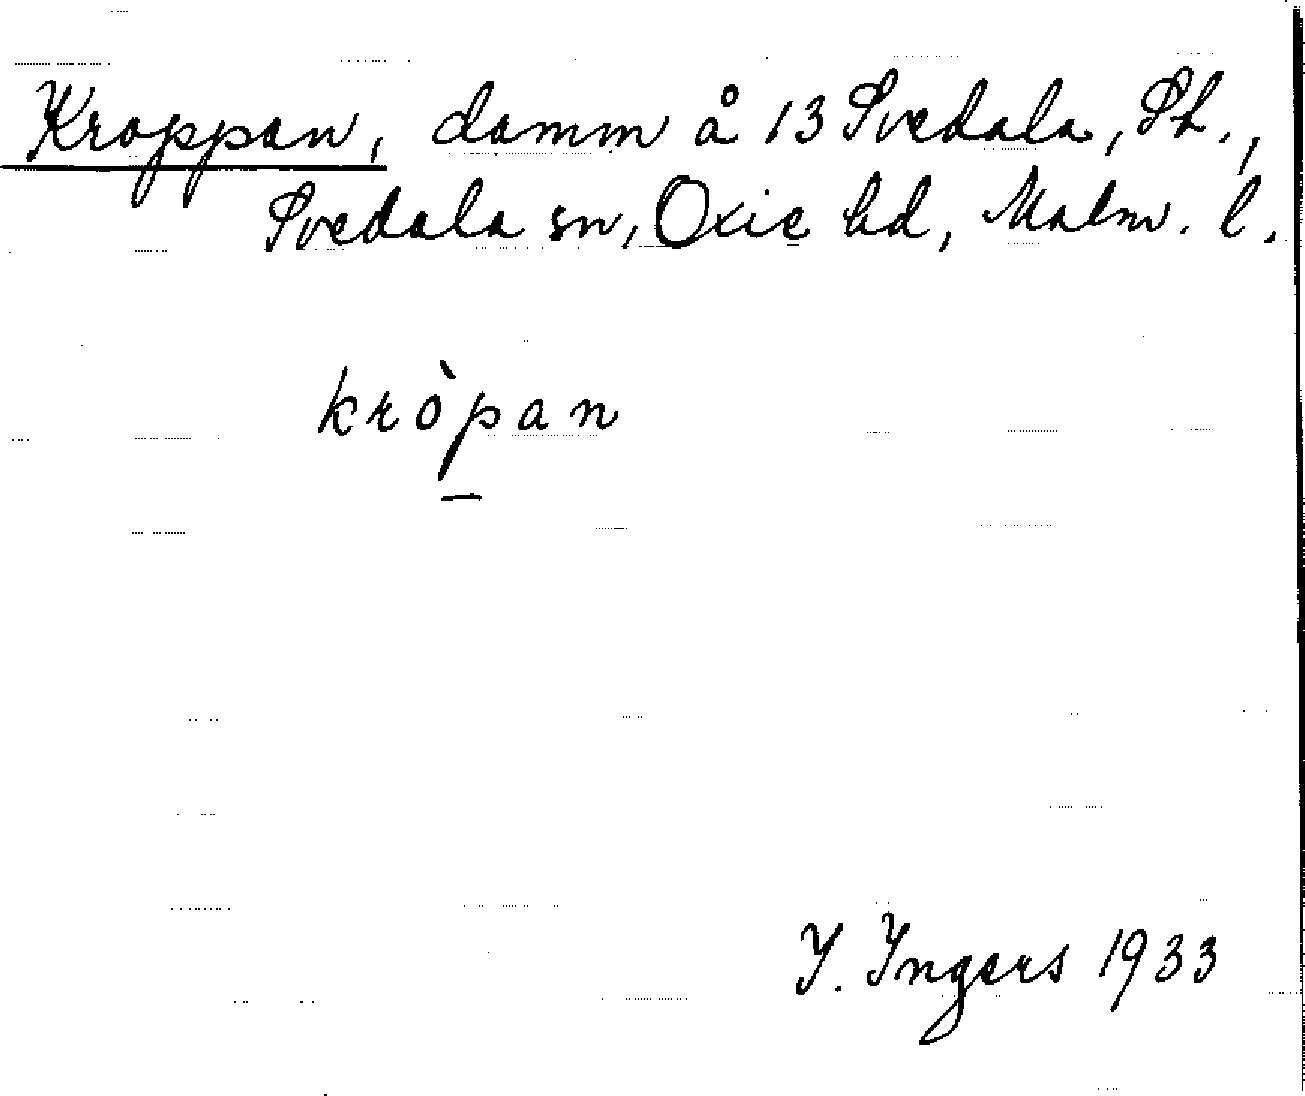 Kroppan, damm å 13 Svedala, Sk.,
Svedala sn, Oxie hd, Malm. l.
kròpan
I. Ingers 1933